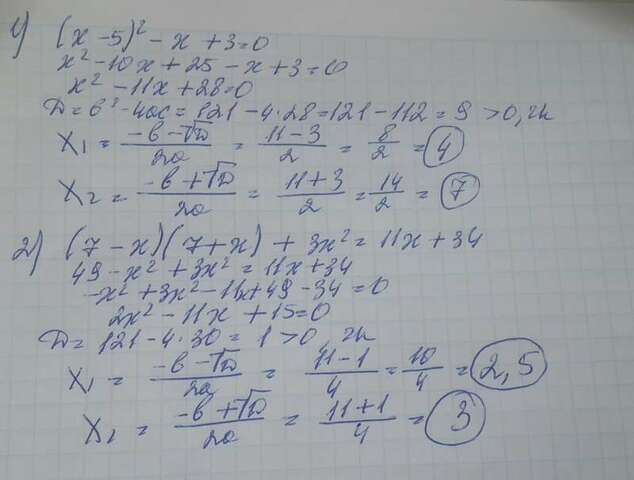 1) (x-5)² - x + 3 = 0
x² - 10x + 25 - x + 3 = 0
x² - 11x + 28 = 0
D = b² - 4ac = 121 - 4·28 = 121 - 112 = 9 > 0, 2к
x₁ = (-b - √D)/2a = (11-3)/2 = 8/2 = 4
x₂ = (-b + √D)/2a = (11+3)/2 = 14/2 = 7
2) (7-x)(7+x) + 3x² = 11x + 34
49 - x² + 3x² = 11x + 34
-x² + 3x² - 11x + 49 - 34 = 0
2x² - 11x + 15 = 0
D = 121 - 4·30 = 1 > 0 2к
x₁ = (-b - √D)/2a = (11-1)/4 = 10/4 = 2,5
x₂ = (-b + √D)/2a = (11+1)/4 = 3